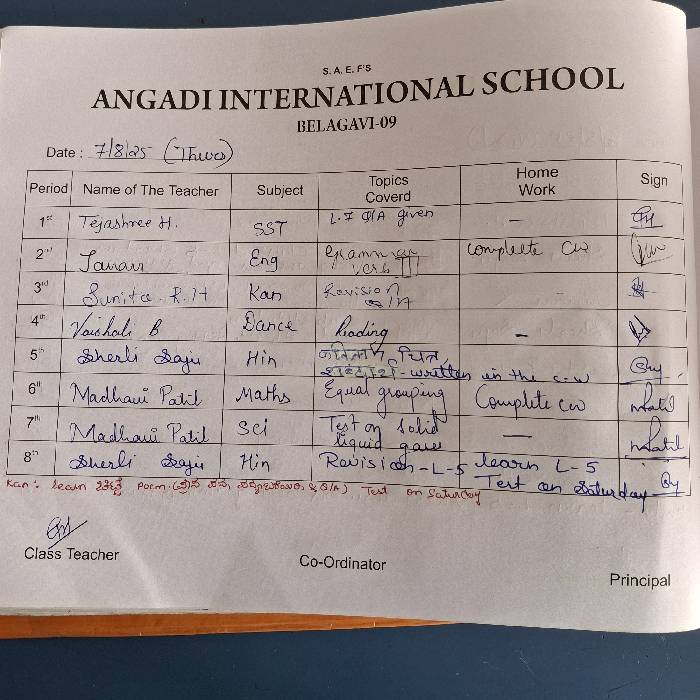 S. A. E. F'S
ANGADI INTERNATIONAL SCHOOL
BELAGAVI-09
Date : 7/8/25 (Thurs)
Period Name of The Teacher Subject Topics Coverd Home Work Sign
1st Tejashree H. SST L-7 Q/A given -
2nd Eng Grammar verb complete CW
3rd Sunita R.H Kan Revision Q/A
4th Vaishali B Dance Reading -
5th Sherli Saju Hin written in the c.w
6th Madhavi Patil Maths Equal grouping Complete CW
7th Madhavi Patil Sci Test on solid liquid gases -
8th Sherli Saju Hin Revision - L-5 learn L-5 Test on Saturday
Kan: learn poem. & Q/A) Test on Saturday
Class Teacher
Co-Ordinator
Principal